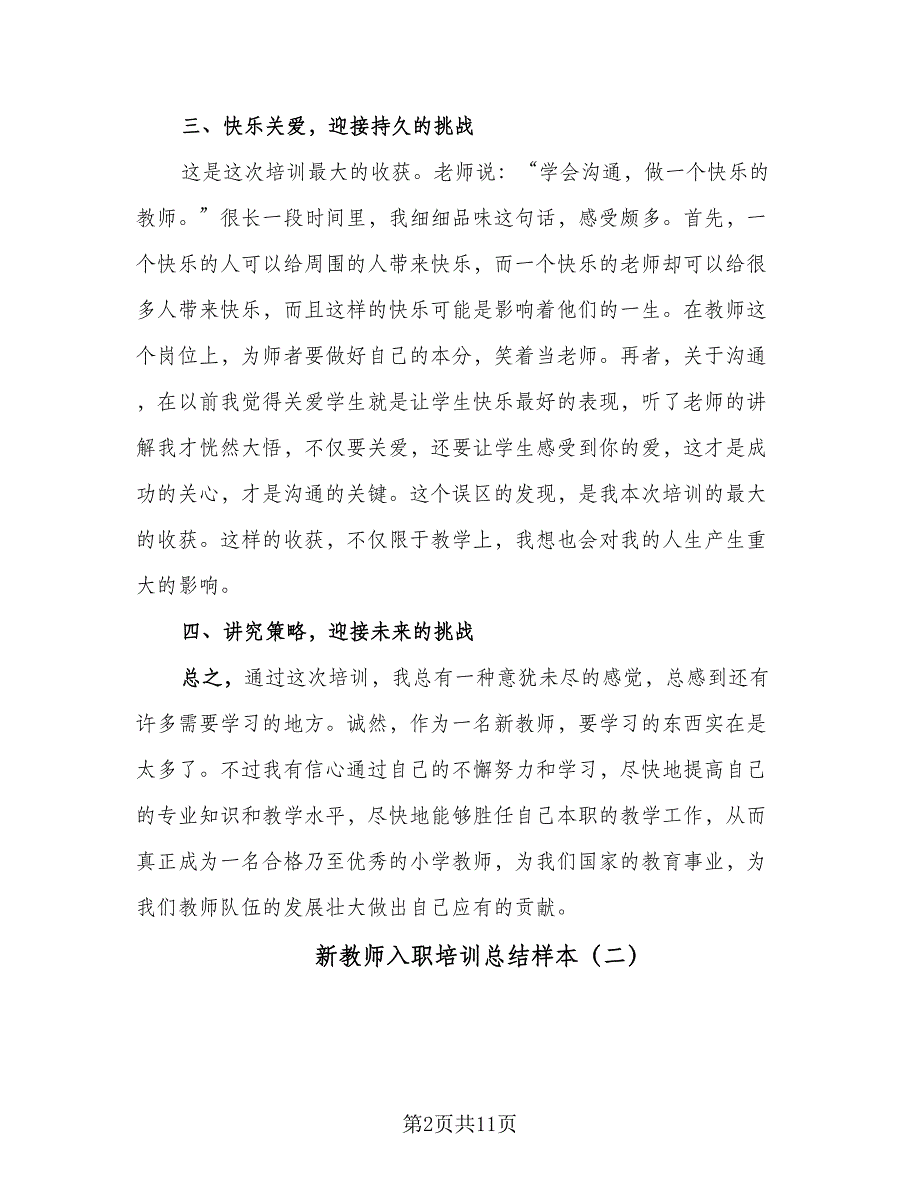 三、快乐关爱，迎接持久的挑战
这是这次培训最大的收获。老师说：“学会沟通，做一个快乐的
教师。”很长一段时间里，我细细品味这句话，感受颇多。首先，一
个快乐的人可以给周围的人带来快乐，而一个快乐的老师却可以给很
多人带来快乐，而且这样的快乐可能是影响着他们的一生。在教师这
个岗位上，为师者要做好自己的本分，笑着当老师。再者，关于沟通
，在以前我觉得关爱学生就是让学生快乐最好的表现，听了老师的讲
解我才恍然大悟，不仅要关爱，还要让学生感受到你的爱，这才是成
功的关心，才是沟通的关键。这个误区的发现，是我本次培训的最大
的收获。这样的收获，不仅限于教学上，我想也会对我的人生产生重
大的影响。
四、讲究策略，迎接未来的挑战
总之，通过这次培训，我总有一种意犹未尽的感觉，总感到还有
许多需要学习的地方。诚然，作为一名新教师，要学习的东西实在是
太多了。不过我有信心通过自己的不懈努力和学习，尽快地提高自己
的专业知识和教学水平，尽快地能够胜任自己本职的教学工作，从而
真正成为一名合格乃至优秀的小学教师，为我们国家的教育事业，为
我们教师队伍的发展壮大做出自己应有的贡献。
新教师入职培训总结样本（二）
第2页共11页